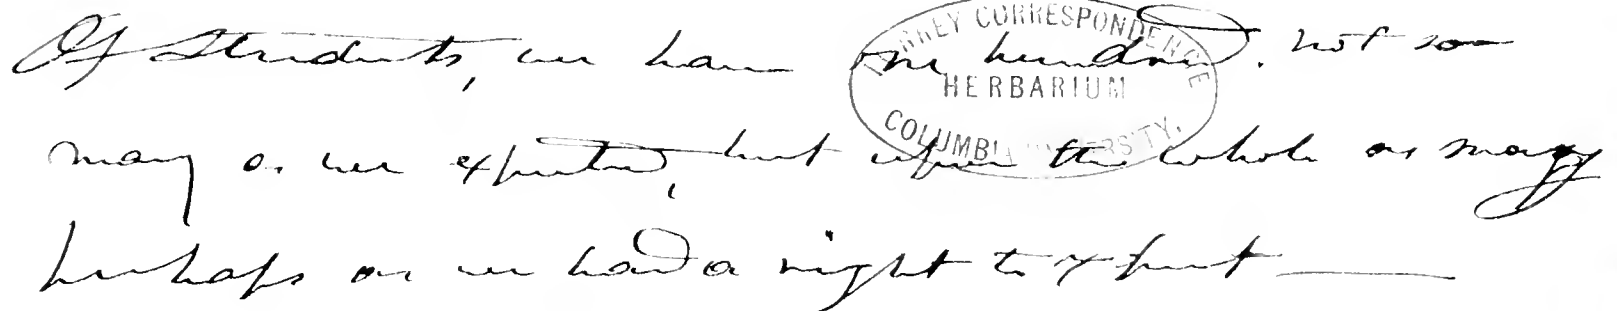 Of Students, we have one hundred. not so
many as we expected, but upon the whole as many
perhaps as we had a right to expect——
TORREY CORRESPONDENCE
HERBARIUM
COLUMBIA UNIVERSITY.